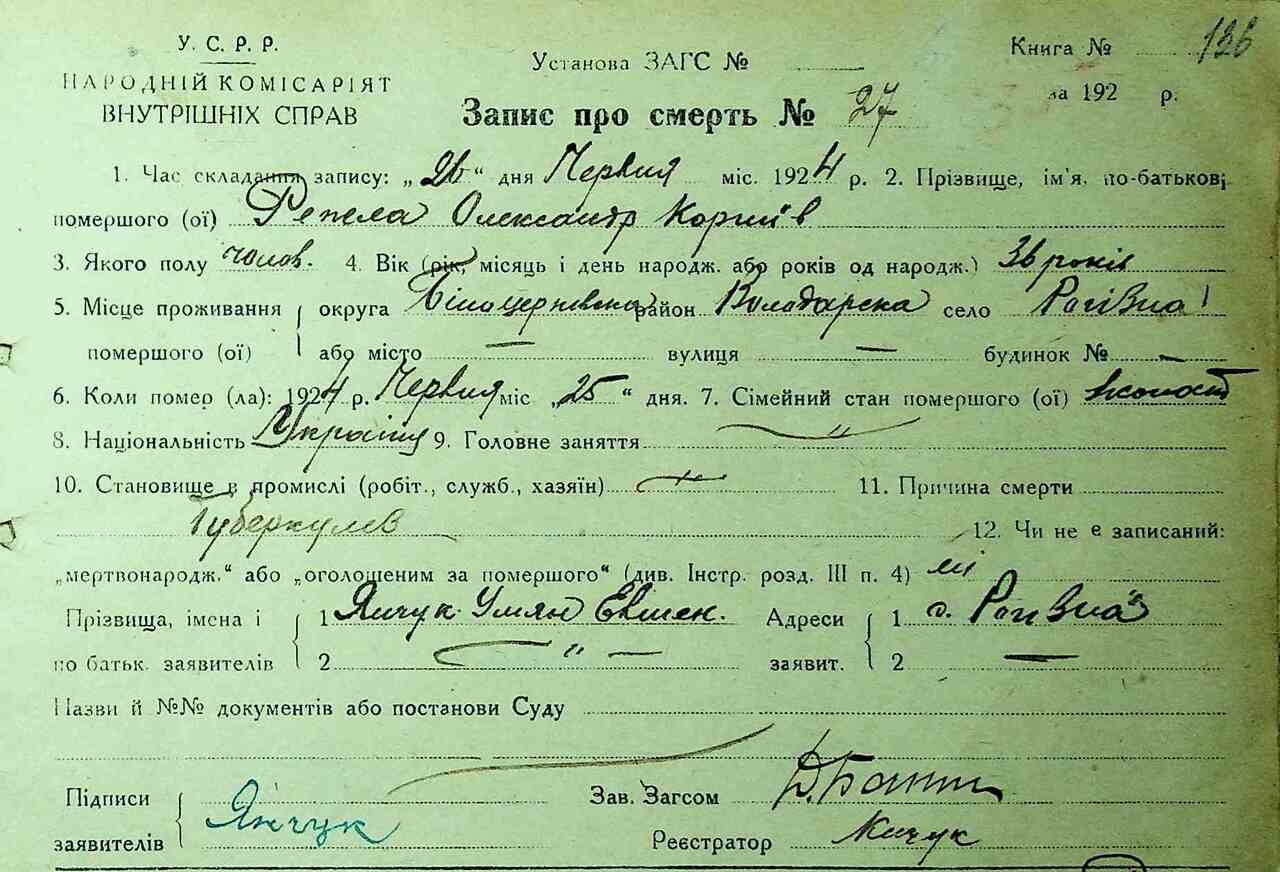 У. С. Р. Р.
НАРОДНІЙ КОМІСАРІЯТ
ВНУТРІШНІХ СПРАВ
Установа ЗАГС №
Книга № 126
за 192 р.
Запис про смерть № 27
1. Час складання запису: „26“ дня Червня міс. 1924 р. 2. Прізвище, ім'я, по-батькові
помершого (ої) Репела Олександр Корніїв
3. Якого полу чолов. 4. Вік (рік, місяць і день народж. або років од народж.) 36 років
5. Місце проживання округа Білоцерковська район Володарска село Рогізна
помершого (ої) або місто — вулиця — будинок № —
6. Коли помер (ла): 1924 р. Червня міс „25“ дня. 7. Сімейний стан помершого (ої)
8. Національність 9. Головне заняття „
10. Становище в промислі (робіт., служб., хазяїн) 11. Причина смерти
Туберкульоз
12. Чи не є записаний:
„мертвонародж.“ або „оголошеним за помершого“ (див. Інстр. розд. III п. 4) ні
Прізвища, імена і 1 Янчук Адреси 1 с. Рогізна
по батьк. заявителів 2 „ — заявит. 2 —
Назви й №№ документів або постанови Суду
Підписи Янчук Зав. Загсом
заявителів Реєстратор